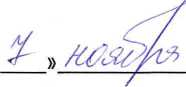 7 » ноября